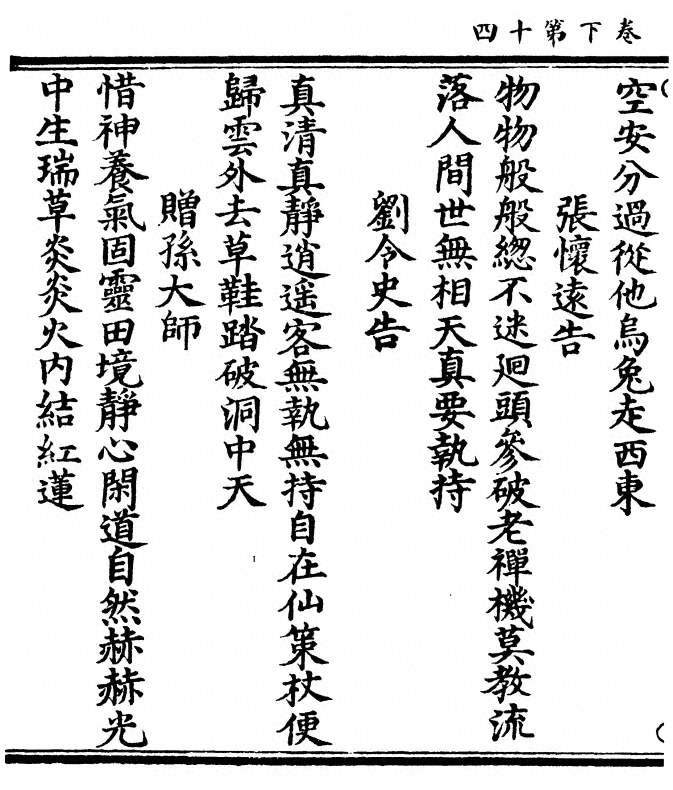 卷下第十四
空安分過從他烏兔走西東
張懷遠告
物物般般緫不迷廻頭參破老禪機莫教流
落人間世無相天真要執持
劉令史告
真清真靜逍遥客無執無持自在仙策杖便
歸雲外去草鞋踏破洞中天
贈孫大師
惜神養氣固靈田境靜心閑道自然赫赫光
中生瑞草炎炎火内結紅蓮